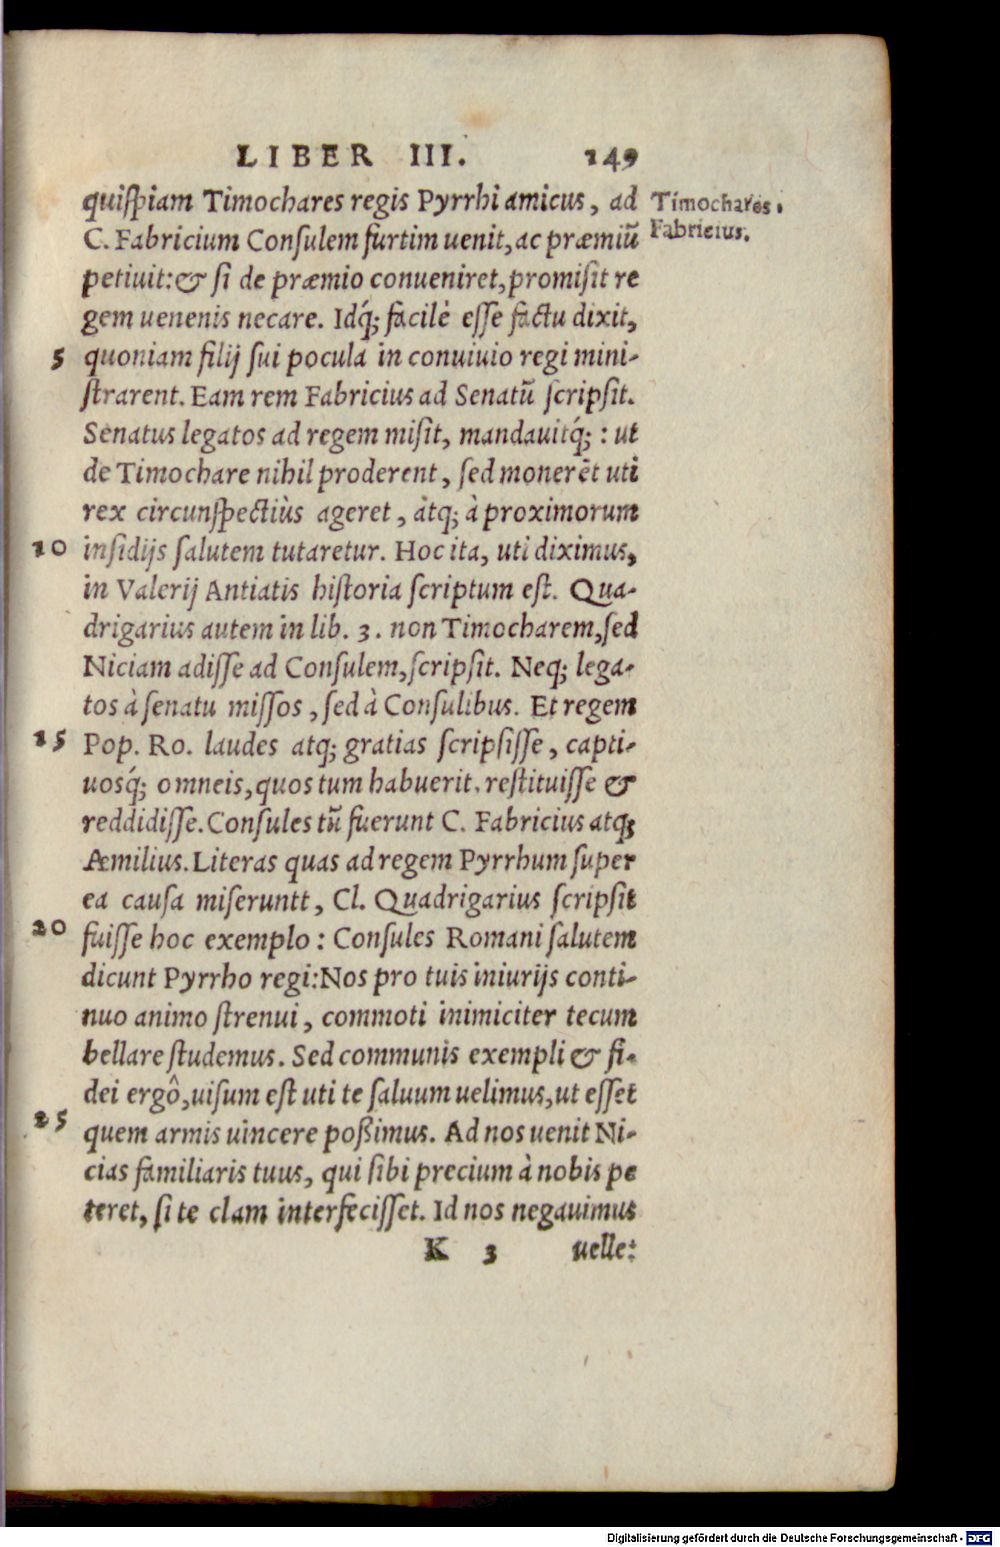 LIBER III. 149
quispiam Timochares regis Pyrrhi amicus, ad
Timochares.
C. Fabricium Consulem furtim uenit, ac præmiũ
Fabricius.
petiuit: & si de præmio conueniret, promisit re
gem uenenis necare. Idq́; facilè esse factu dixit,
5 quoniam filij sui pocula in conuiuio regi mini-
strarent. Eam rem Fabricius ad Senatũ scripsit.
Senatus legatos ad regem misit, mandauitq́; : ut
de Timochare nihil proderent, sed monerẽt uti
rex circunspectiùs ageret, àtq; à proximorum
10 insidijs salutem tutaretur. Hoc ita, uti diximus,
in Valerij Antiatis historia scriptum est. Qua-
drigarius autem in lib. 3. non Timocharem, sed
Niciam adisse ad Consulem, scripsit. Neq; lega-
tos à senatu missos, sed à Consulibus. Et regem
15 Pop. Ro. laudes atq; gratias scripsisse, capti-
uosq́; omneis, quos tum habuerit, restituisse &
reddidisse. Consules tũ fuerunt C. Fabricius atq;
Æmilius. Literas quas ad regem Pyrrhum super
ea causa miseruntt, Cl. Quadrigarius scripsit
20 fuisse hoc exemplo: Consules Romani salutem
dicunt Pyrrho regi: Nos pro tuis iniurijs conti-
nuo animo strenui, commoti inimiciter tecum
bellare studemus. Sed communis exempli & fi-
dei ergô, uisum est uti te saluum uelimus, ut esset
25 quem armis uincere poßimus. Ad nos uenit Ni-
cias familiaris tuus, qui sibi precium à nobis pe
teret, si te clam interfecisset. Id nos negauimus
K 3 uelle:
Digitalisierung gefördert durch die Deutsche Forschungsgemeinschaft - DFG